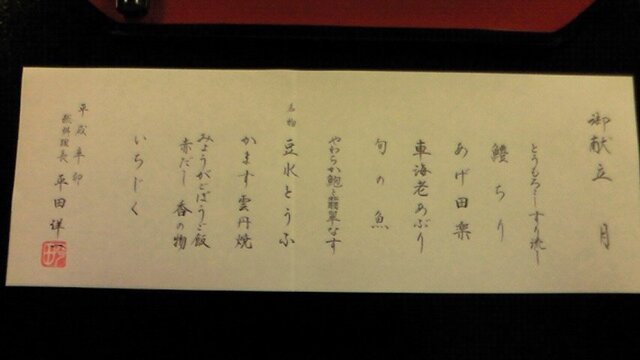 御献立 月
とうもろこしすり流し
鱧ちり
あげ田楽
車海老あぶり
旬の魚
やわらか鮑と翡翠なす
名物 豆水とうふ
かます雲丹焼
みょうがごぼうご飯
赤だし 香の物
いちじく
平成辛卯
総料理長 平田 祥一